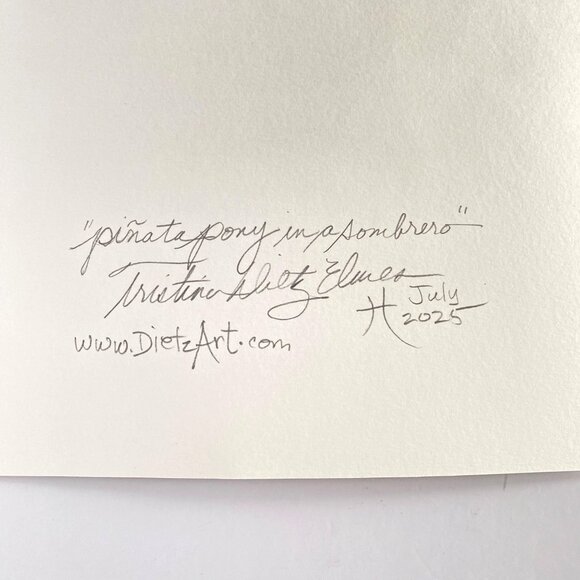 "piñata pony in a sombrero"
Tristina Dietz Elmes
July
2025
www.DietzArt.com